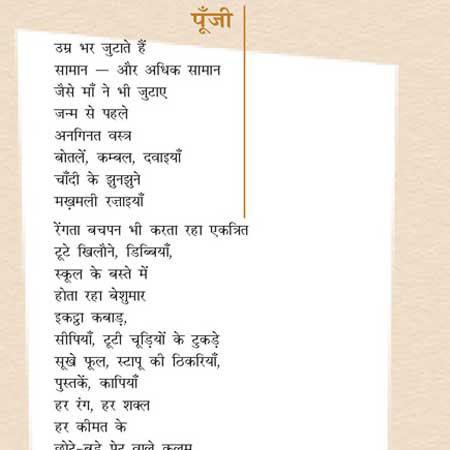 पूँजी
उम्र भर जुटाते हैं
सामान — और अधिक सामान
जैसे माँ ने भी जुटाए
जन्म से पहले
अनगिनत वस्त्र
बोतलें, कम्बल, दवाइयाँ
चाँदी के झुनझुने
मख़मली रज़ाइयाँ
रेंगता बचपन भी करता रहा एकत्रित
टूटे खिलौने, डिब्बियाँ,
स्कूल के बस्ते में
होता रहा बेशुमार
इकट्ठा कबाड़,
सीपियाँ, टूटी चूड़ियों के टुकड़े
सूखे फूल, स्टापू की ठिकरियाँ,
पुस्तकें, कापियाँ
हर रंग, हर शक्ल
हर कीमत के
छोटे-बड़े पेट वाले कलम